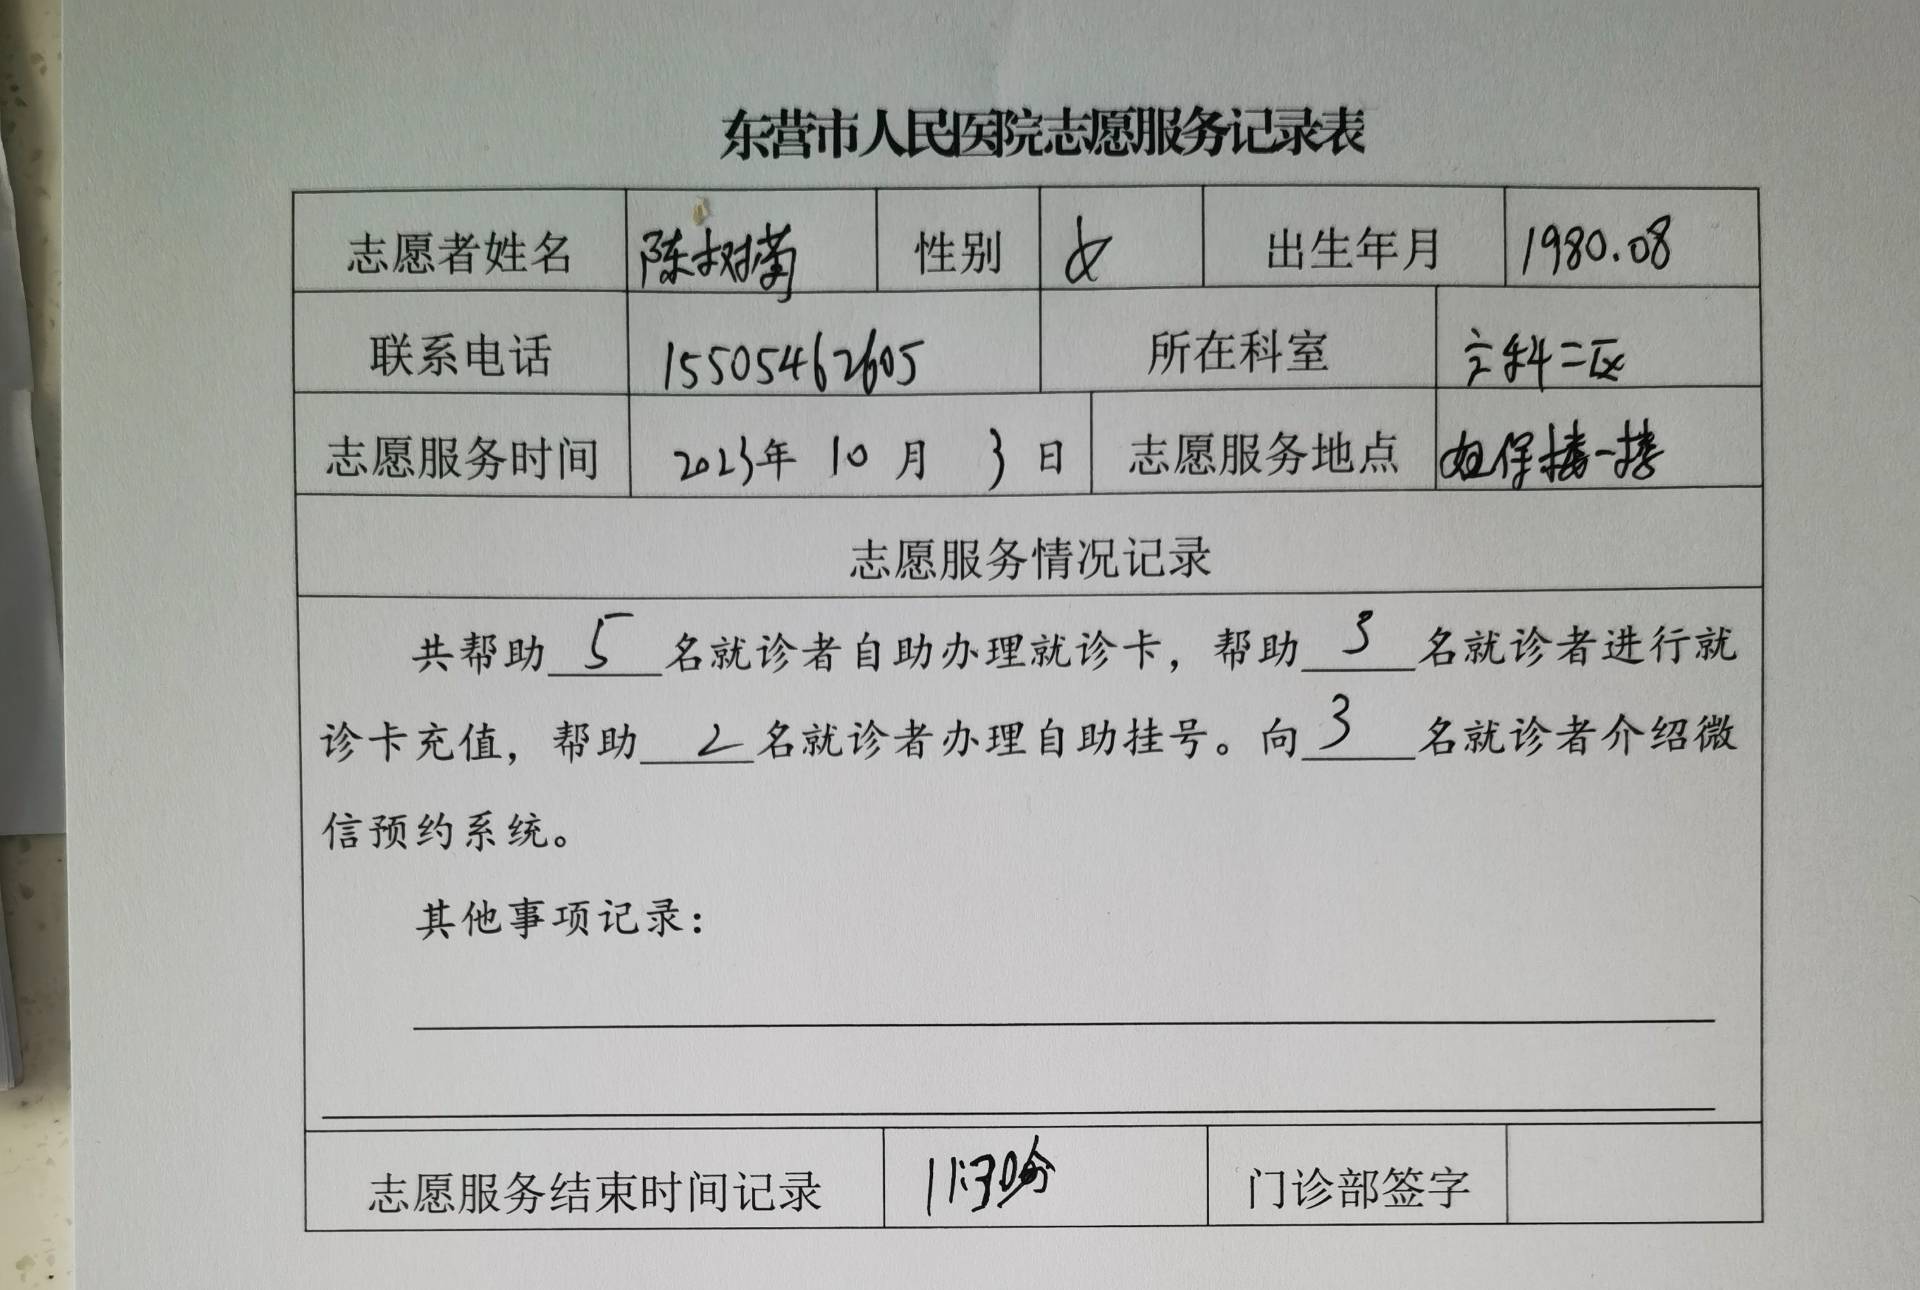 东营市人民医院志愿服务记录表
志愿者姓名 陈树菊 性别 女 出生年月 1980.08
联系电话 15505462605 所在科室 科二区
志愿服务时间 2023年 10 月 3 日 志愿服务地点 妇保楼一楼
志愿服务情况记录
共帮助 5 名就诊者自助办理就诊卡，帮助 3 名就诊者进行就
诊卡充值，帮助 2 名就诊者办理自助挂号。向 3 名就诊者介绍微
信预约系统。
其他事项记录：
志愿服务结束时间记录 11:30 门诊部签字